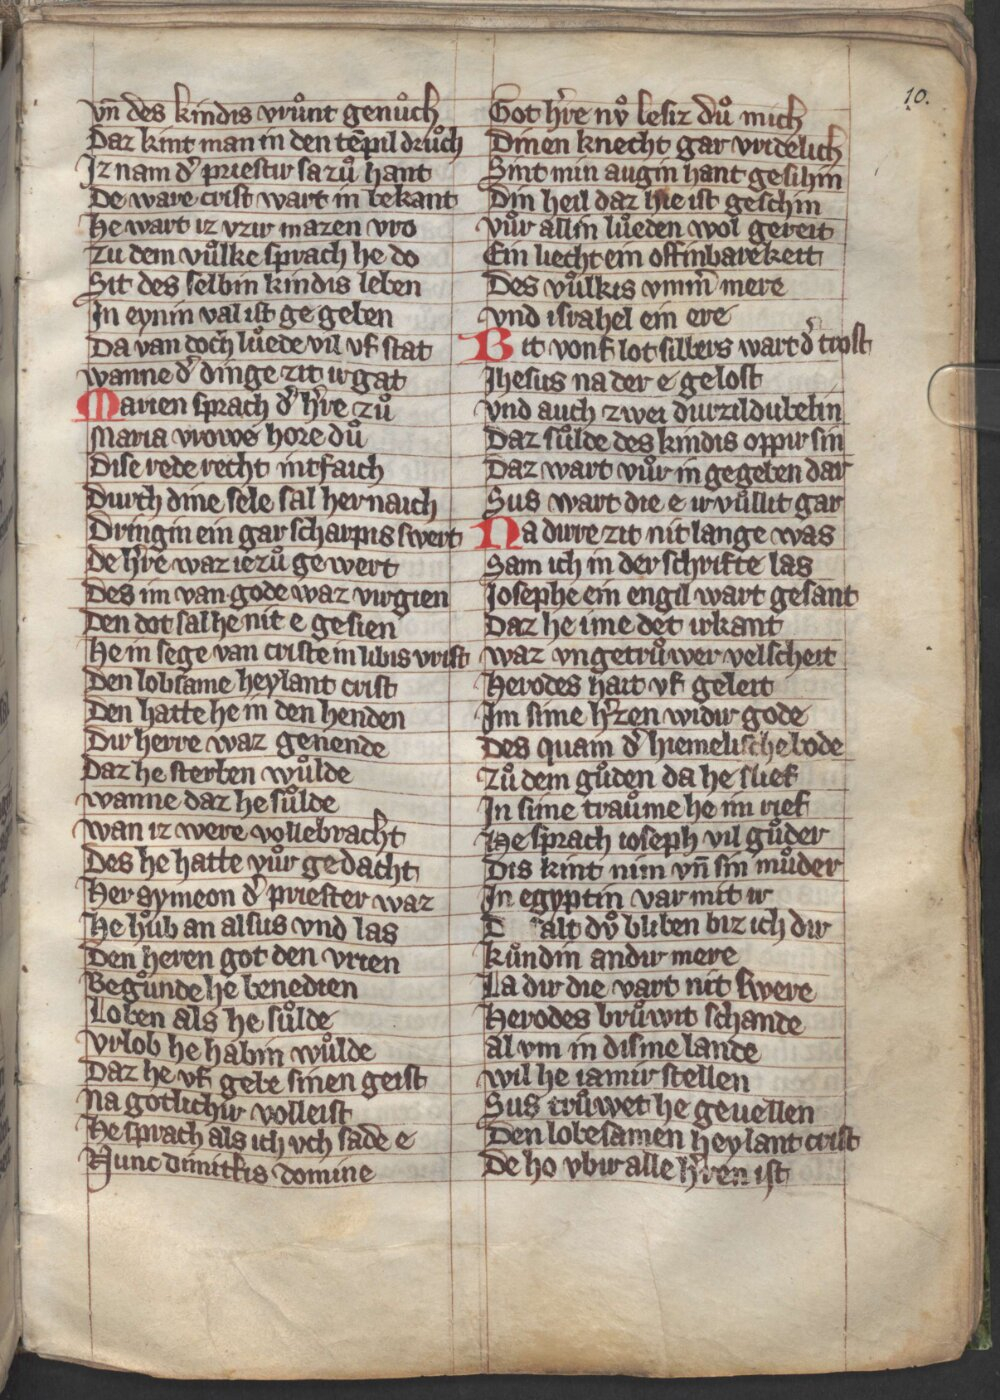 10.
vn̄ des kindis vrůnt genůch
Daz kint man in den tēpil drůch
Iz nam d͛ priestir sa zů hant
De ware crist wart in bekant
He wart iz vzir mazen vro
zu dem vůlke sprach he do
Sit des selbin kindis leben
In eynin val ist ge geben
Da van doch lůede vil vf stat
wanne d͛ dinge zit irgat
Marien sprach d͛ h͛re zů
Maria vrowe hore dů
Dise rede recht intfaich
Durch dine sele sal her naich
Dringin ein gar scharpis swert
De h͛re waz iezů gewert
Des im van gode waz virgien
Den dot sal he nit e gesien
He in sege van criste in libis vrist
Den lobsame heylant crist
Den hatte he in den henden
Dir herre waz genende
Daz he sterben wůlde
wanne daz he sůlde
wan iz were vollebracht
Des he hatte vůr gedacht
Her symeon d͛ priester waz
He hůb an alsus vnd las
Den heren got den vrien
Begůnde he benedien
Loben als he sůlde
Vrlob he habin wůlde
Daz he vf gebe sinen geist
Na gotlichir volleist
He sprach als ich vch sade e
Nunc dimittis domine
Got h͛re nv̊ lesiz dů mich
Dinen knecht gar vridelich
Sint min augin hant gesihin
Din heil daz hie ist geschin
Vůr allin lůeden wol gereit
Ein liecht ein offinbarekeit
Des vůlkis vmm͛ mere
vnd israhel ein ere
Bit vonf lot silbers wart d͛ trost
Jhesus na der e gelost
vnd auch zwei durzildubelin
Daz sůlde des kindis oppir sin
Daz wart vůr in gegeben dar
Sus wart die e irvůllit gar
Na dirre zit nit lange was
Sam ich in der schrifte las
Josephe ein engil wart gesant
Daz he ime det irkant
waz vngetrůwer velscheit
Herodes hait vf geleit
Im sime h͛zen widir gode
Des quam d͛ hiemelische bode
zů dem gůden da he slief
In sime traůme he im rief
He sprach ioseph vil gůder
Dis kint nim vn̄ sin můder
In egyptin var mit ir
alt dv̊ bliben biz ich dir
kůndin andir mere
La dir die vart nit swere
Herodes brůwit schande
al vm in disme lande
wil he iamir stellen
Sus trůwet he geuellen
Den lobesamen heylant crist
De ho vbir alle h͛ren ist